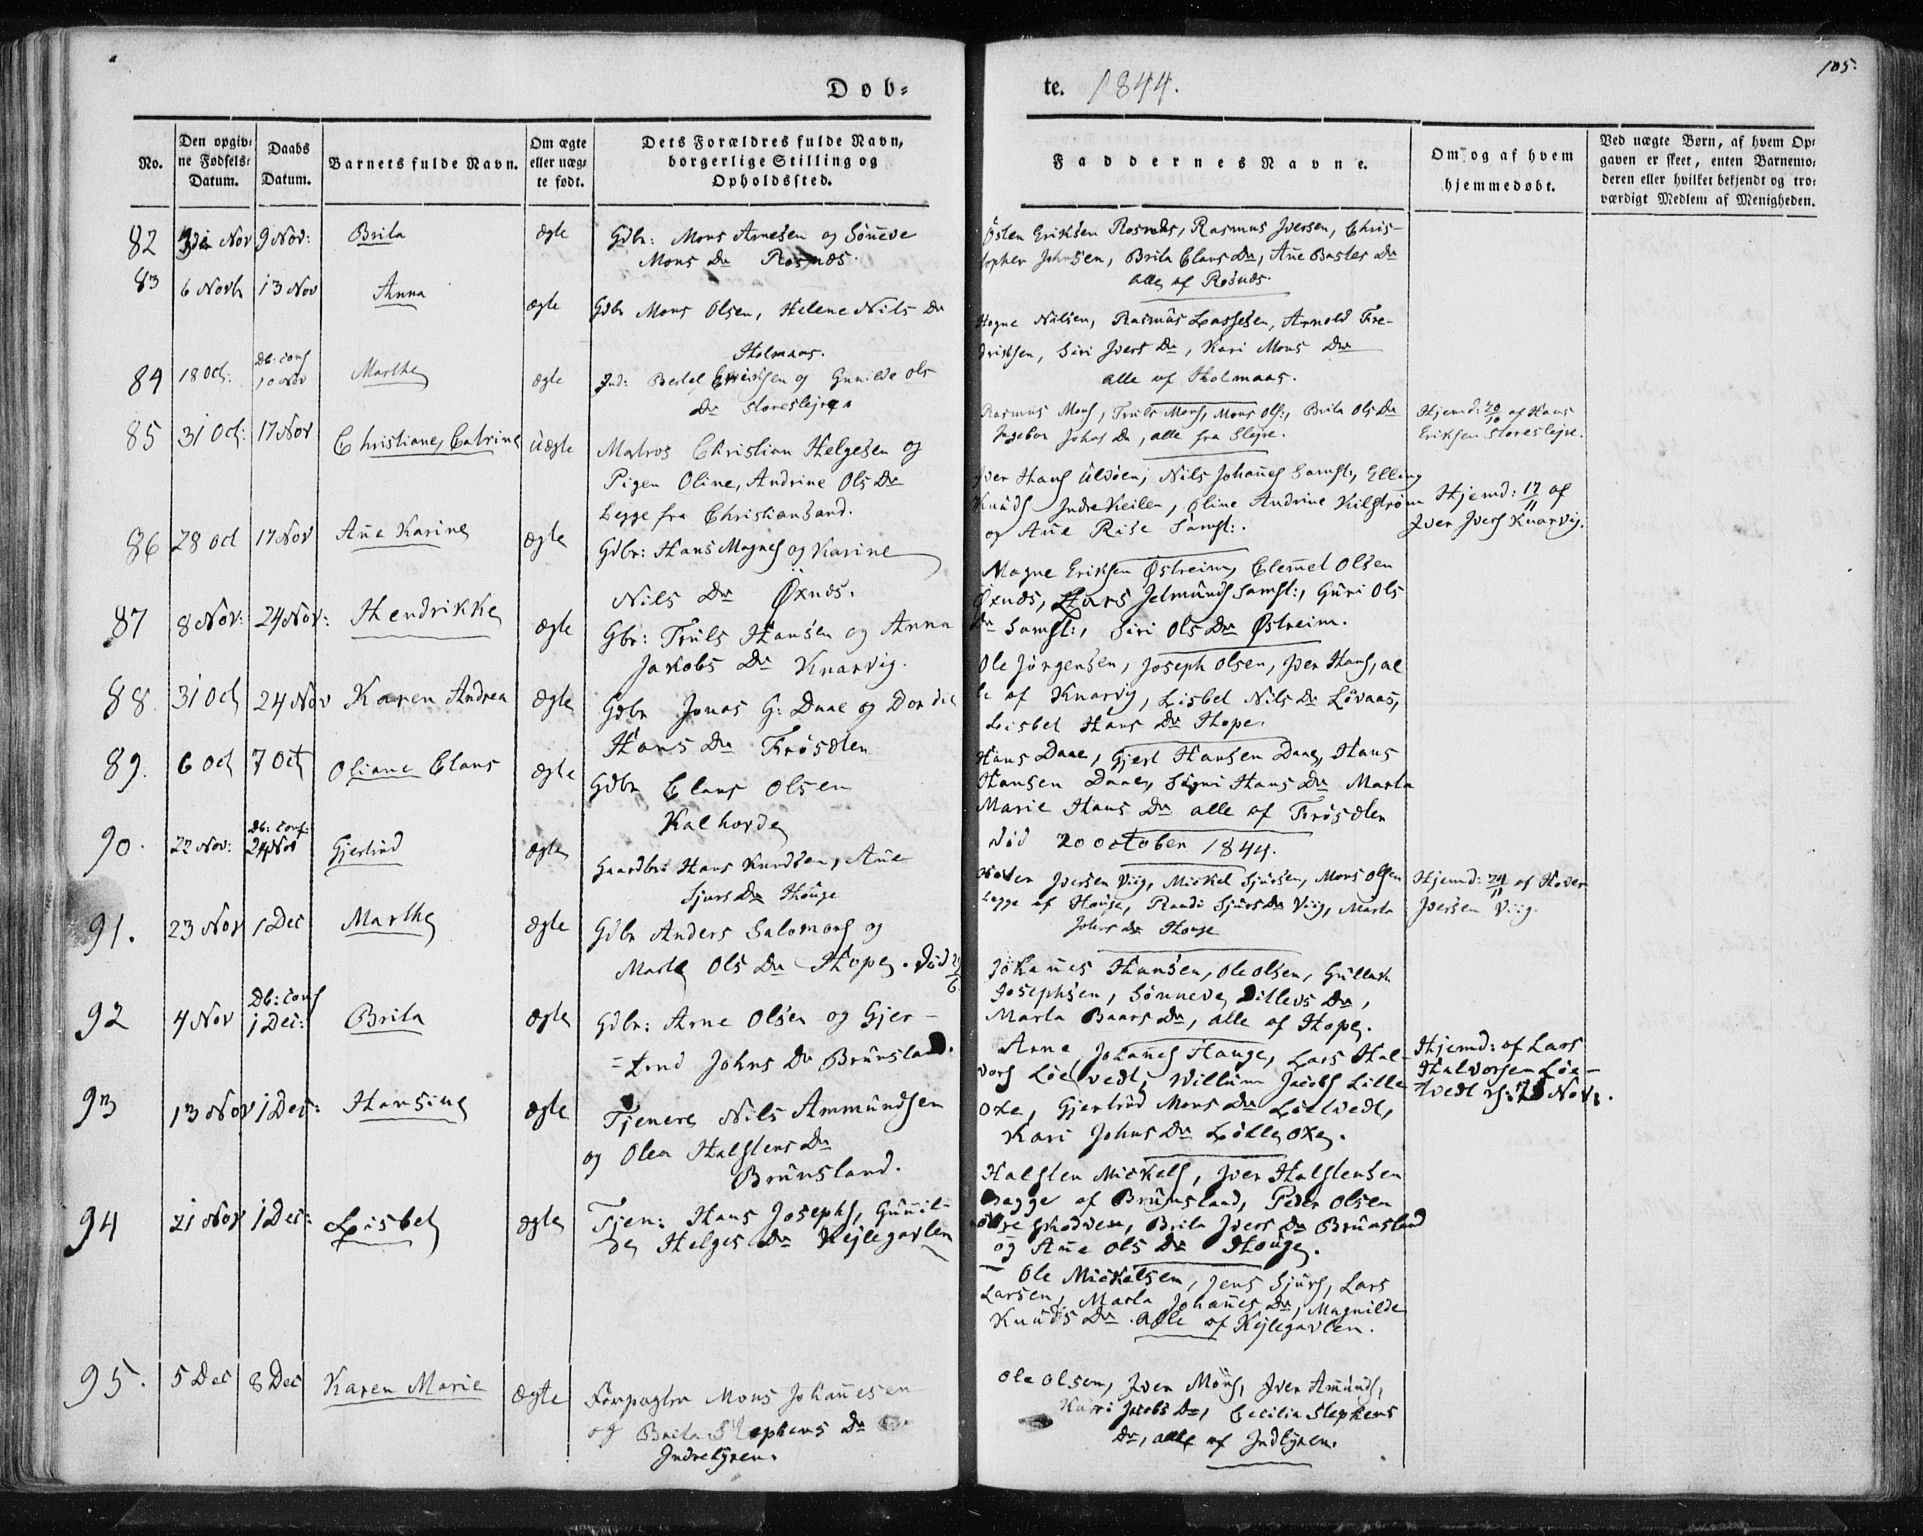 Døb-
te. 1844.
105.
No.
Den opgiv-
ne Fødsels-
Datum.
Daabs
Datum.
Barnets fulde Navn.
Om ægte
eller uæg-
te født.
Dets Forældres fulde Navn,
borgerlige Stilling og
Opholdssted.
Faddernes Navne.
Om og af hvem
hjemmedøbt.
Ved uægte Børn, af hvem Op-
gaven er skeet, enten Barnemo-
deren eller hvilket bekjendt og tro-
værdigt Medlem af Menigheden.
82 Nov 9 Nov: Brita ægte Gdbr: Mons Arnesen og Sönneve
Mons Dr Rosnæs.
Østen Eriksen Rosnæs, Rasmus Iversen, Chris-
topher Johnsen, Brita Claus Dr, Añe Dr
alle af Rosnæs.
83 6 Novb 13 Nov Anna ægte Gdbr Mons Olsen, Helene Nils Dr
Holmaas.
Hogne Nilsen, Rasmus Lassesen, Arnold Fre-
driksen, Siri Ivers Dr, Kari Mons Dr
alle af Holmaas.
84 18 Oct: Db: conf
10 Nov Marthe ægte Ind: Bertel Eriksen og Gunilde Ols
Dr Storeslejre
Rasmus Mons, Truls Mons, Mons Ols:, Brita Ols Dr
Ingebor Johns Dr, alle fra Slejre.
Hjemd: 20/10 af Hans
Eriksen Storeslejre.
85 31 Oct: 17 Nov Christiane, Catrine Uægte Matros Christian Helgesen og
Pigen Oline, Andrine Ols Dr
begge fra Christiansand.
Iver Hans Uldöen, Nils Johañes Samst:, Elling
Knuds Indre Keilen, Oline Andrine Kilström
og Añe Rise Samst:.
Hjemd: 17/11 af
Iver Ivers Knarvig.
86 28 Oct 17 Nov Añe Karine ægte Gdbr: Hans Magnes og Karine
Nils Dr Öxnæs.
Magne Eriksen Østreim, Clemet Olsen
Öxnæs, Lars Jelmunds Samst:, Guri Ols
Dr Samst:, Siri Ols Dr Østreim.
87 8 Nov: 24 Nov: Hendrikke ægte Gbr: Truls Hansen og Anna
Jakobs Dr Knarvig.
Ole Jörgensen, Joseph Olsen, Iver Hans, al
le af Knarvig, Lisbet Nils Dr Lövaas,
Lisbet Hans Dr Hope.
88. 31 Oct 24 Nov Karen Andrea ægte Gdbr Jonas G: Daae og Dordei
Hans Dr Trösdlen
Hans Daae, Gjert Hansen Daae, Hans
Hansen Daae, Signi Hans Dr Marta
Marie Hans Dr alle af Trösdlen
89. 6 Oct 7 Oct Oliane Claus ægte Gdbr Claus Olsen
Kalhovde
død 20 october 1844.
90. 22 Nov: Db: conf:
24 Nov Gjertrud ægte Gaardbr: Hans Knudsen, Añe
Sjurs Dr Houge
Iversen Viig, Mickel Sjursen, Mons Olsen
begge af Houge, Randi Sjurs Dr Viig, Marta
Johns Dr Houge
Hjemd: 24/11 af
Iversen Viig.
91. 23 Nov 1 Dec Marthe ægte Gdbr Anders Salomons og
Marte Ols Dr Hope. død
Johañes Hansen, Ole Olsen, Gullak
Josephsen, Sönneve Ditlevs Dr,
Marta Baars Dr, alle af Hope.
92 4 Nov Db: conf
1 Dec: Brita ægte Gdbr: Arne Olsen og Gjer-
=trud Johns Dr Brunsland.
Arne Johañes Hauge, Lars Hal-
vors Löetvedt, Willum Jacobs Lille
oxe, Gjertrud Mons Dr Löetvedt,
Kari Johns Dr Lölle oxe.
Hjemd: af Lars
Halvorsen Löe-
tvedt Nov:.
93 13 Nov 1 Dec: Hansine ægte Tjenere Nils Ammundsen
og Olea Halstens Dr
Brunsland.
Halsten Mickels, Iver Halstensen
begge af Brunsland, Peder Olsen
Skodven, Brita Ivers Dr Brunsland
og Añe Ols Dr Houge.
94 21 Nov 1 Dec: Lisbet ægte Tjen: Hans Josephs, Guñil-
de Helges Dr Kejlegavlen
Ole Mickelsen, Jens Sjurs, Lars
Larsen, Marta Johañes Dr, Magnilde
Knuds Dr alle af Kejlegavlen.
95. 5 Dec 8 Dec Karen Marie Ægte Forpagter Mons Johañesen
og Brita Stephens Dr
Indrelyren.
Ole Olsen, Iver Mons, Iver Amunds,
Kari Jacobs Dr, Cecilia Stephens
Dr, alle af Indlyren.